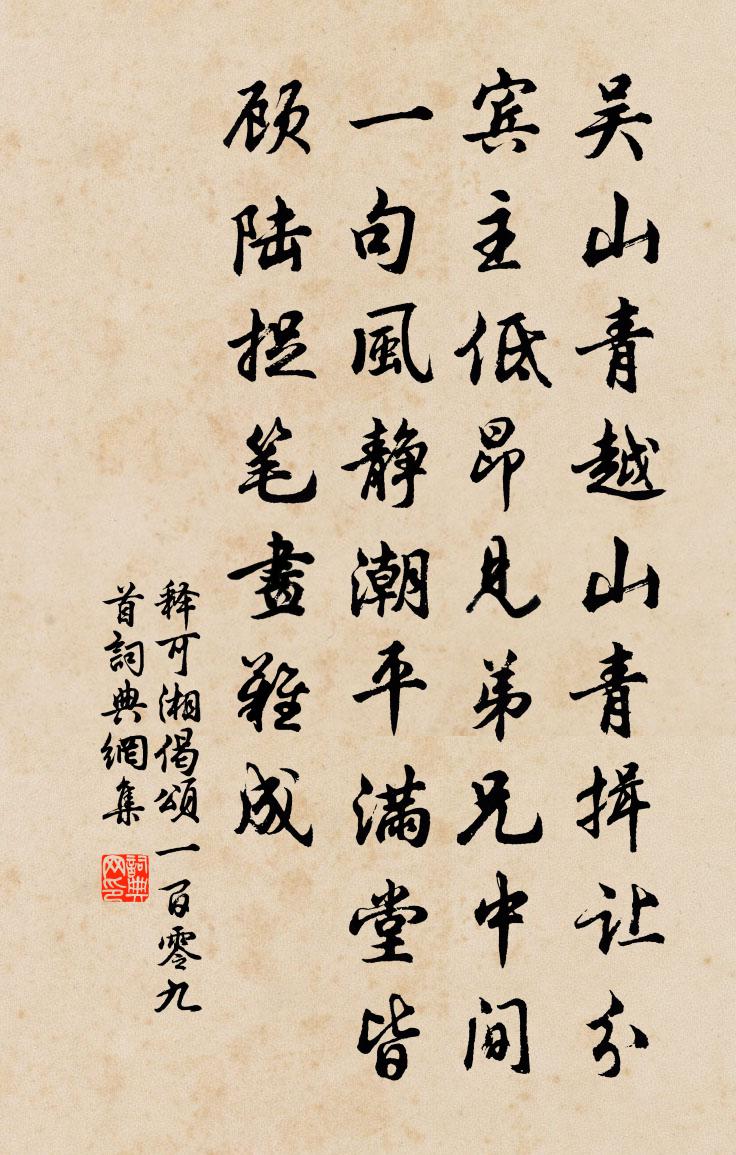 吴山青越山青揖让分
宾主低昂见弟兄中间
一句風静潮平满堂皆
顾陆捉笔畫難成
释可湘偈颂一百零九
首詞典網集
詞典网印